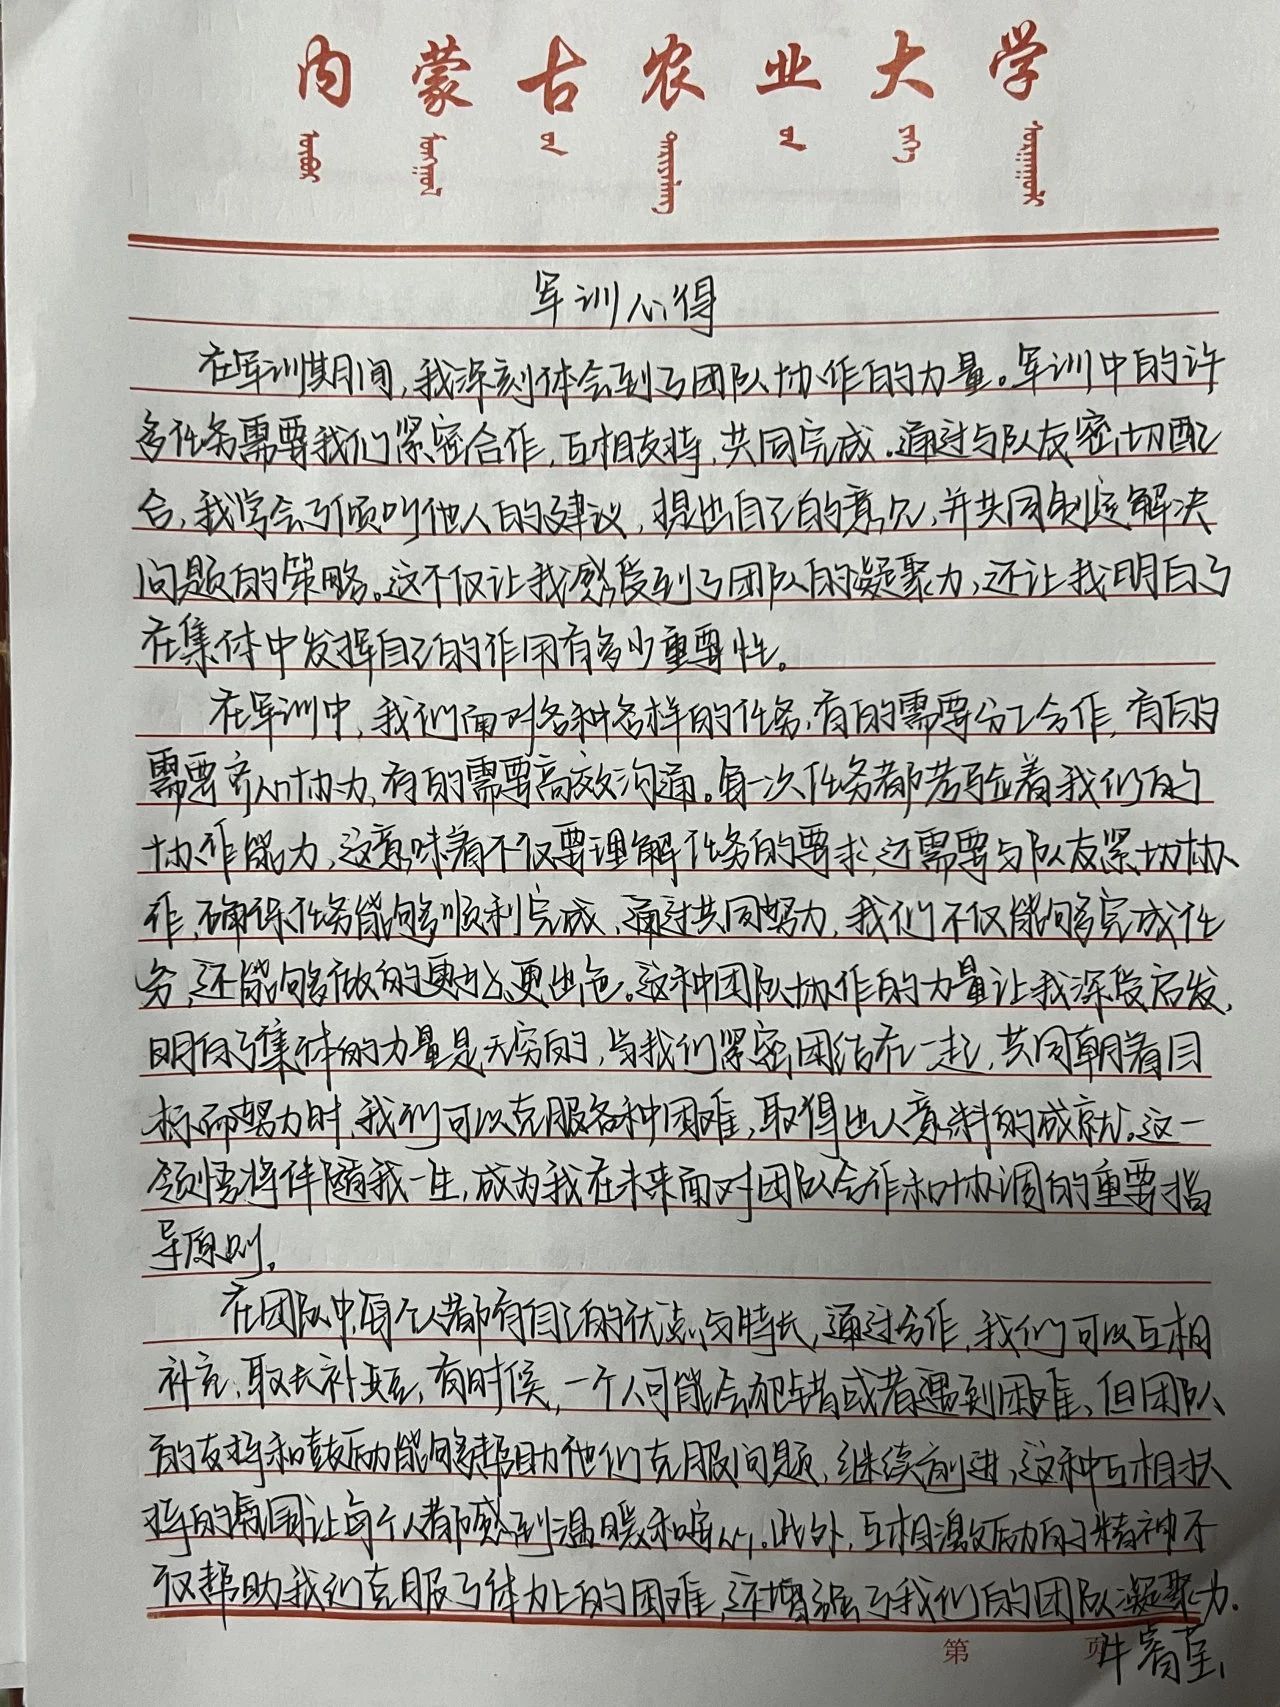 内蒙古农业大学
军训心得
在军训期间,我深刻体会到了团队协作的力量。军训中的许
多任务需要我们紧密合作,互相支持,共同完成.通过与队友密切配
合,我学会了倾听他人的建议,提出自己的意见,并共同制定解决
问题的策略。这不仅让我感受到了团队的凝聚力,还让我明白了
在集体中发挥自己的作用有多少重要性。
在军训中,我们面对各种各样的任务,有的需要分工合作,有的
需要齐心协力,有的需要高效沟通。每一次任务都考验着我们的
协作能力,这意味着不仅要理解任务的要求,还需要与队友紧切协
作,确保任务能够顺利完成,通过共同努力,我们不仅能够完成任
务,还能够做的更好、更出色。这种团队协作的力量让我深受启发,
明白了集体的力量是无穷的,当我们紧密团结在一起,共同朝着目
标而努力时,我们可以克服各种困难,取得出人意料的成就。这一
领悟将伴随我一生,成为我在未来面对团队合作和协调的重要指
导原则。
在团队中,每个人都有自己的优点与特长,通过合作,我们可以互相
补充,取长补短,有时候,一个人可能会犯错或者遇到困难,但团队
的支持和鼓励能够帮助他们克服问题,继续前进,这种互相扶
持的氛围让每个人都感到温暖和安心。此外,互相激励的精神不
仅帮助我们克服了体力上的困难,还增强了我们的团队凝聚力.
第 页